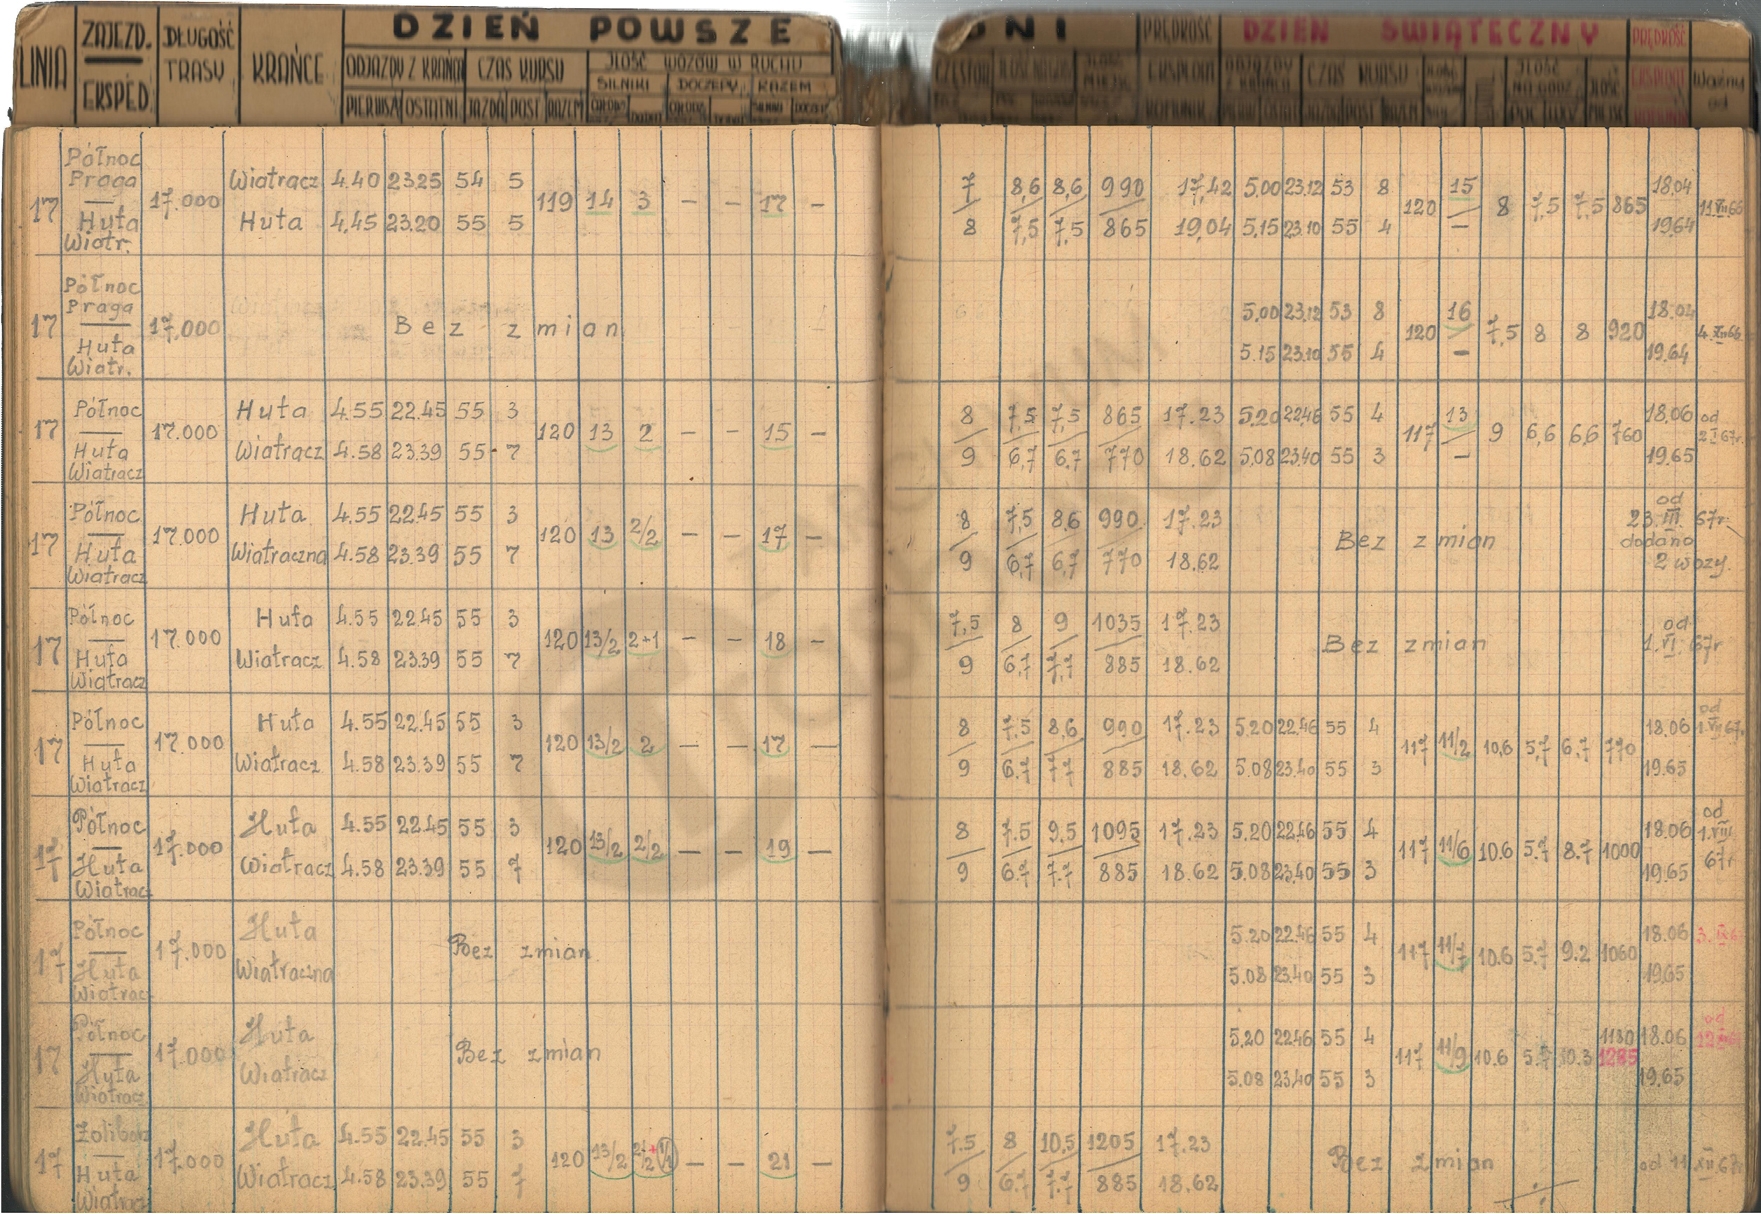 LINIA ZAJEZD. EKSPED. DŁUGOŚĆ TRASY KRAŃCE DZIEŃ POWSZE DNI PRĘDKOŚĆ DZIEŃ ŚWIĄTECZNY PRĘDKOŚĆ
ODJAZDY Z KRAŃCA CZAS KURSU ILOŚĆ WOZÓW W RUCHU EKSPLOAT CZAS KURSU ILOŚĆ Ważny od
SILNIKI DOCZEPY RAZEM
PIERWSZY OSTATNI JAZDA POST RAZEM
Północ
Praga Wiatracz 4.40 23.25 54 5 7 8,6 8,6 990 17,42 5.00 23.12 53 8 15 18.04
17 17.000 119 14 3 — — 17 — 120 8 7,5 7,5 865
Huta Huta 4.45 23.20 55 5 8 7,5 7,5 865 19,04 5.15 23.10 55 4 — 19.64
Wiatr.
Północ
Praga 5.00 23.12 53 8 16 18.04
17 17.000 Bez zmian 120 7,5 8 8 920
Huta 5.15 23.10 55 4 — 19.64
Wiatr.
Północ Huta 4.55 22.45 55 3 8 7,5 7,5 865 17.23 5.20 22.46 55 4 13 18.06 od
17 17.000 120 13 2 — — 15 — 117 9 6,6 6,6 760 2 I 67r.
Huta Wiatracz 4.58 23.39 55 7 9 6,7 6,7 770 18.62 5.08 23.40 55 3 — 19.65
Wiatracz
Północ Huta 4.55 22.45 55 3 8 7,5 8,6 990 17.23 od 23.III. 67r.
17 17.000 120 13 2/2 — — 17 — Bez zmian dodano
Huta Wiatraczna 4.58 23.39 55 7 9 6,7 6,7 770 18.62 2 wozy.
Wiatracz
Północ Huta 4.55 22.45 55 3 7,5 8 9 1035 17.23 od
17 17.000 120 13/2 2+1 — — 18 — Bez zmian 1.VI. 67r
Huta Wiatracz 4.58 23.39 55 7 9 6,7 7,7 885 18.62
Wiatracz
Północ Huta 4.55 22.45 55 3 8 7.5 8,6 990 17.23 5.20 22.46 55 4 18.06 od
17 17.000 120 13/2 2 — — 17 — 117 11/2 10,6 5,7 6,7 770
Huta Wiatracz 4.58 23.39 55 7 9 6.7 7.7 885 18.62 5.08 23.40 55 3 19.65
Wiatracz
Północ Huta 4.55 22.45 55 3 8 7.5 9.5 1095 17.23 5.20 22.46 55 4 18.06 od 1.VIII
17 17.000 120 13/2 2/2 — — 19 — 117 11/6 10.6 5.7 8.7 1000 67r
Huta Wiatracz 4.58 23.39 55 7 9 6.7 7.7 885 18.62 5.08 23.40 55 3 19.65
Wiatracz
Północ Huta 5.20 22.46 55 4 18.06
17 17.000 Bez zmian 117 11/7 10.6 5.7 9.2 1060
Huta Wiatraczna 5.08 23.40 55 3 19.65
Wiatracz
Północ Huta 5.20 22.46 55 4 1130 18.06 od
17 17.000 Bez zmian 117 11/9 10.6 5.7 10.3 1285
Huta Wiatracz 5.08 23.40 55 3 19.65
Wiatracz
Żoliborz Huta 4.55 22.45 55 3 7.5 8 10,5 1205 17.23
17 17.000 120 13/2 — — 21 — Bez zmian od 11 XII 67r
Huta Wiatracz 4.58 23.39 55 7 9 6.7 7.7 885 18.62
Wiatracz